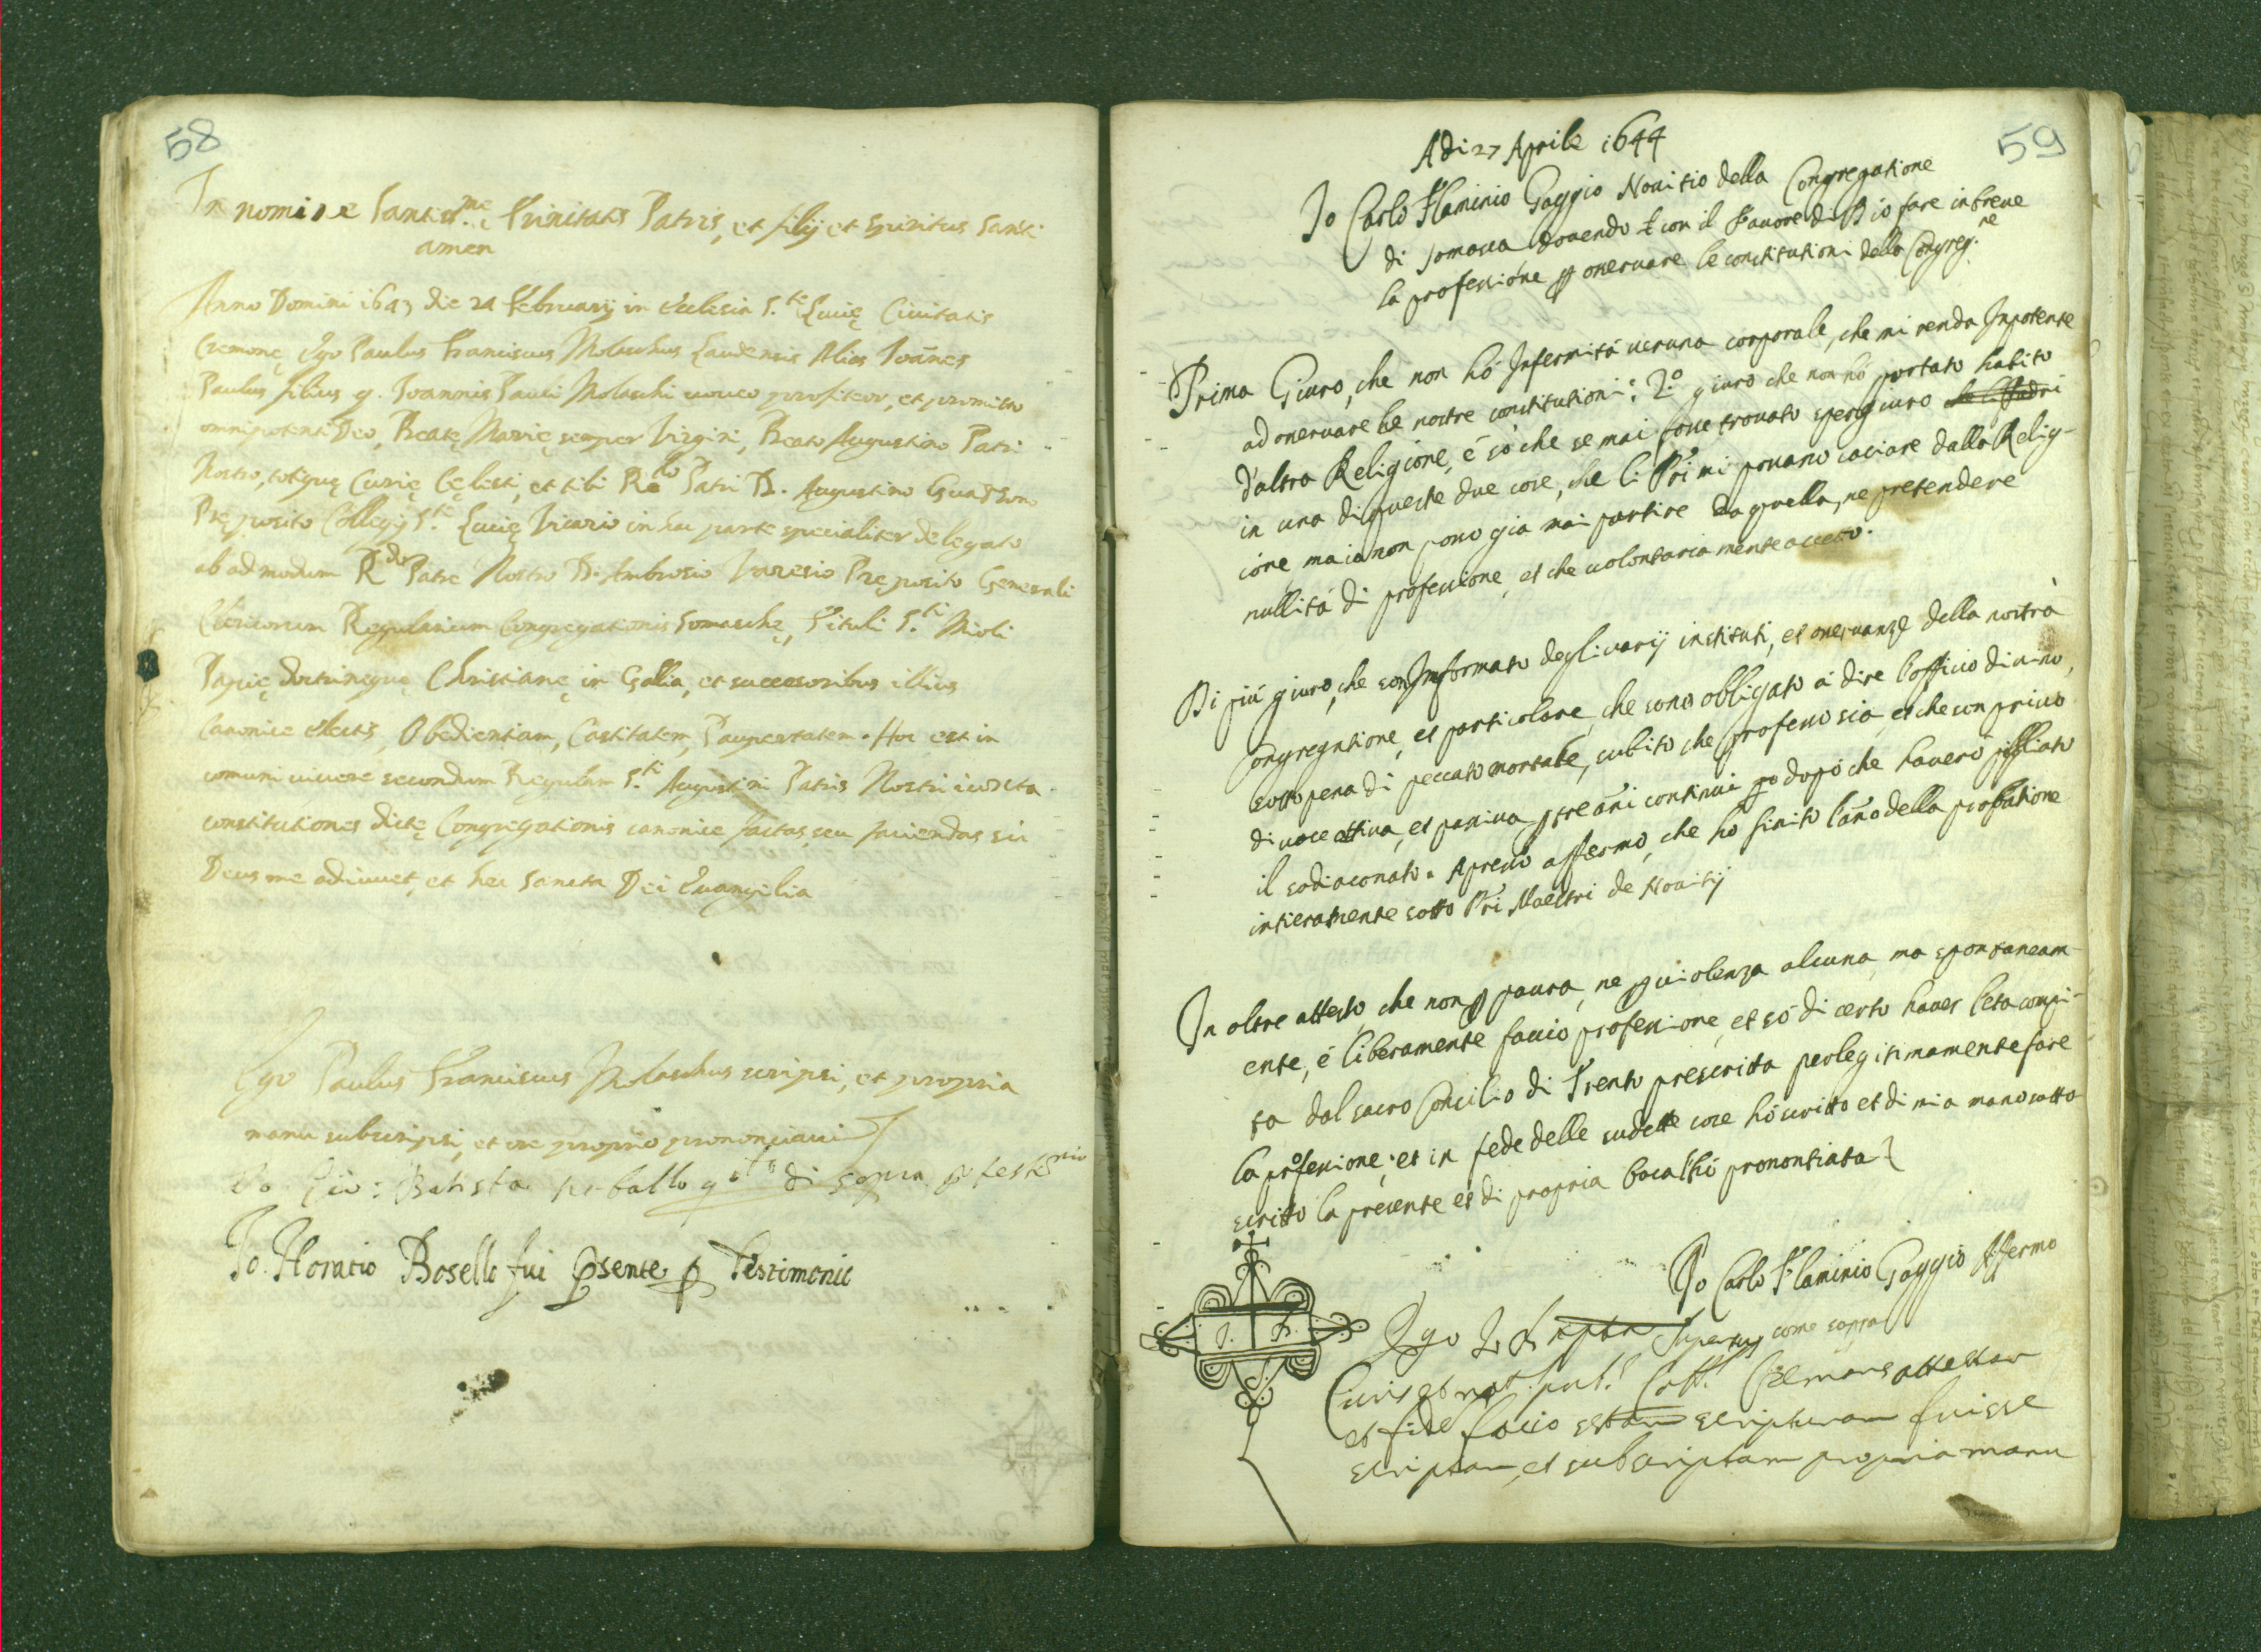 58
In nomine Santis.me Trinitatis Patris, et filij et Spiritus Santi
amen
Anno Domini 1643 die 24 februarij in Ecclesia S.te Lucię Civitatis
Cremonę Ego Paulus Franciscus Molaschus Laudensis Alias Joãnes
Paulus filius q. Joannis Pauli Molaschi voveo profiteor, et promitto
omnipotenti Deo, Beatę Marię semper Virgini, Beato Augustino Patri
Nostro, totique Curię Cęlesti, et tibi Re.do Patri D. Augustino
Pręposito Collegij S.te Lucię Vicario in hac parte specialiter delegato
ab admodum R.do Patre Nostro D. Ambrosio Varesio Pręposito Generali
Clericorum Regularium Congregationis Somaschę, Tituli S.ti Mioli
Papię doctrinęque Christianę in Gallia, et successoribus illius
canonice electis, Obedientiam, Castitatem, Paupertatem. Hoc est in
comuni vivere secundum Regulam S.ti Augustini Patris Nostri iuxta
constitutiones dictę Congregationis canonice factas, seu faciendas sic
Deus me adiuvet, et hec Sancta Dei Evangelia
Ego Paulus Franciscus Molaschus scripsi, et propria
manu subscripsi, et ore proprio prononciavi
Io Gio: Batista di sopra p testimonio
Io. Horatio Bosello fui psente p Testimonio
59
Adi 27 Aprile 1644
Jo Carlo Flaminio Gaggio Novitio della Congregatione
di Somasca dovendo con il favore di Dio fare in breve
la professione p osservare le constitutioni della Congreg.ne
Prima Giuro, che non hó Infermitá veruna corporale, che mi renda Inpotente
ad osservare le nostre constitutioni: 2.o giuro che non hó portato habito
d'altra Religione, é só che se mai fosse trovato spergiuro che li Padri
in una di queste due cose, che li Pri mi possano caciare dalla Relig-
ione ma io non posso gia mai partire da quella, ne pretendere
nullitá di professione, et che volontariamente accetto.
Di piú giuro, che son Informato degli varij instituti, et osservanze della nostra
Congregatione, et particolare che sono obligato á dire l'officio divino,
sotto pena di peccato mortale, subito che professo sia, et che son privo
di voce attiva, et passiva p tre anni continui po dopó che haveró pigliato
il sodiaconato. Apresso affermo, che ho finito l'ano della probatione
intieramente sotto Pri Maestri de Novitij
In oltre attesto, che non p paura, ne p violenza alcuna, ma spontaneam-
ente, é liberamente faccio professione, et só di certo haver l'eta compi-
ta dal sacro Concilio di Trento prescritta per legitimamente fare
la professione; et in fede delle sudette cose hó scritto et di mia mano sotto
scritto la presente et di propria boca l'hó prononciata
Jo Carlo Flaminio Gaggio Affermo
come sopra
Ego
Civis et not. pub. Coll. Cremons attestor
et fide facio scripturam fuisse
scriptam, et subscriptam propria manu